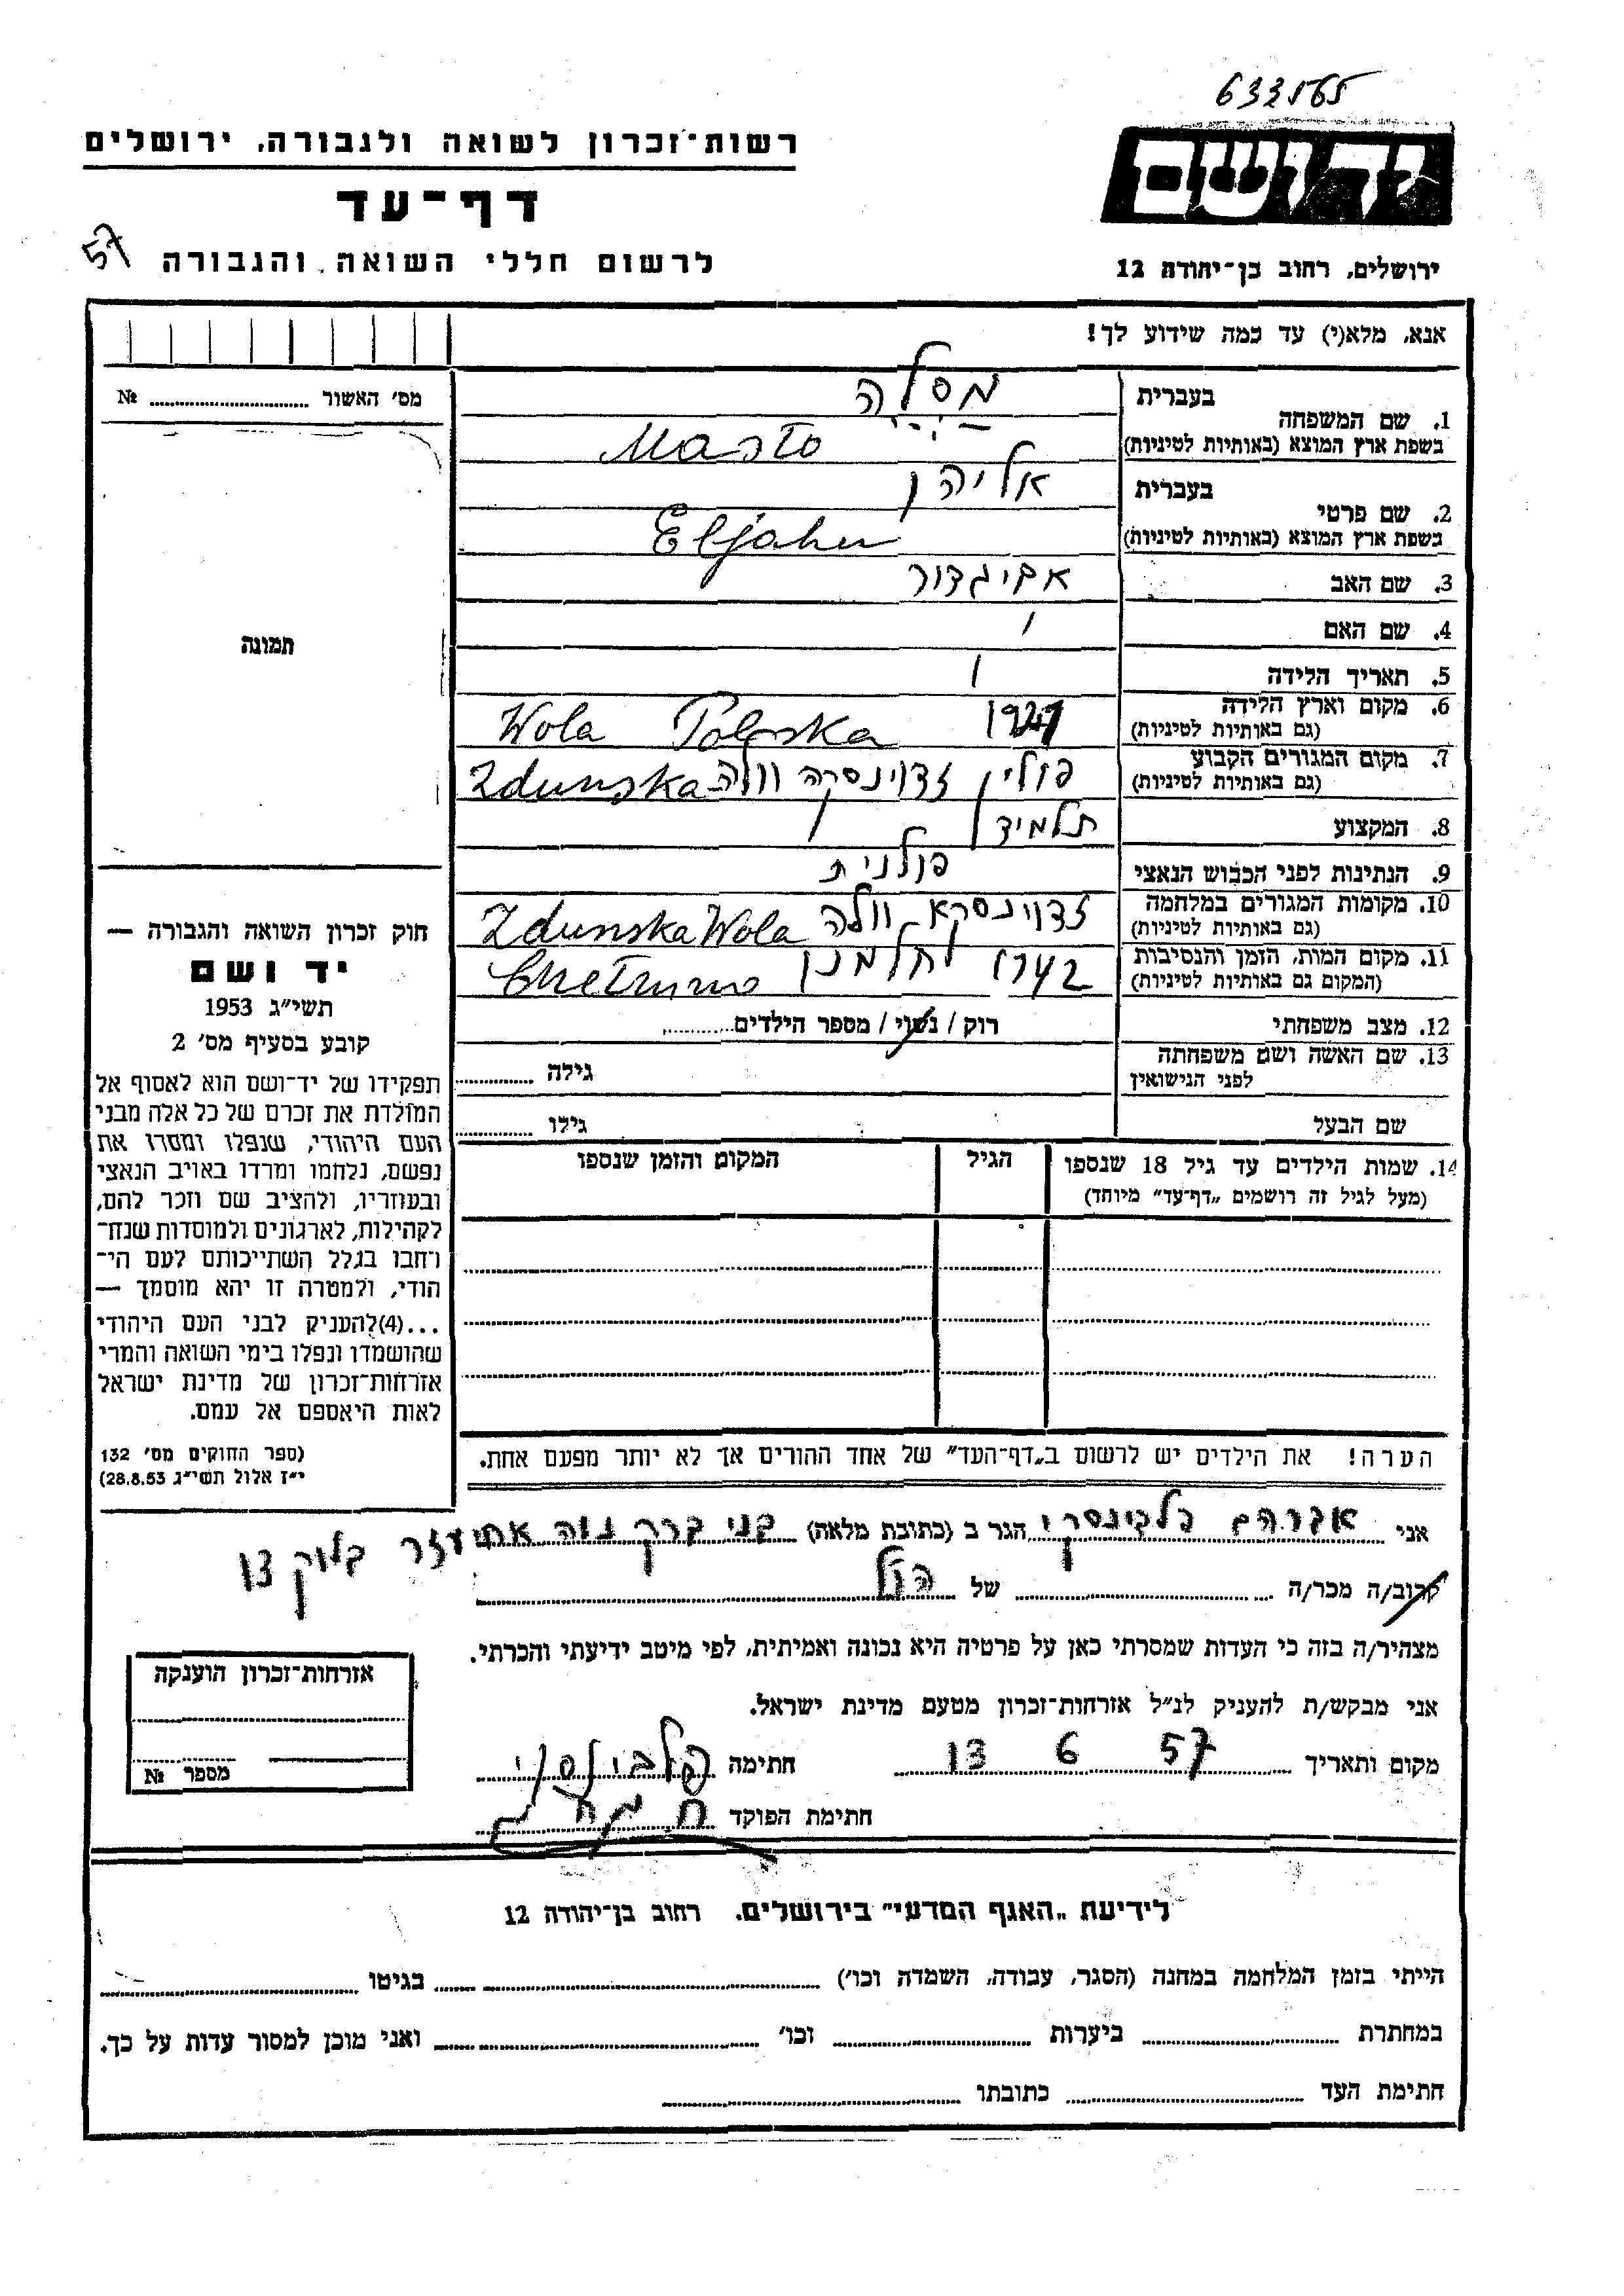 633565
יד ושם
רשות־זכרון לשואה ולגבורה, ירושלים
דף־עד
57
לרשום חללי השואה והגבורה
ירושלים, רחוב בן־יהודה 12
אנא, מלא(י) עד כמה שידוע לך!
מס' האשור № 
תמונה
1. שם המשפחה בעברית מסלה
בשפת ארץ המוצא (באותיות לטיניות) Masło
2. שם פרטי בעברית אליהו
בשפת ארץ המוצא (באותיות לטיניות) Eljahu
3. שם האב אביגדור
4. שם האם
5. תאריך הלידה
6. מקום וארץ הלידה Wola Polska
(גם באותיות לטיניות)
7. מקום המגורים הקבוע פולין זדוינסקה וולה Zdunska
(גם באותיות לטיניות)
8. המקצוע תלמיד
9. הנתינות לפני הכבוש הנאצי פולנית
10. מקומות המגורים במלחמה זדוינסקא וולה Zdunska Wola
(גם באותיות לטיניות)
11. מקום המות, הזמן והנסיבות
(המקום גם באותיות לטיניות)
12. מצב משפחתי רוק / נשוי / מספר הילדים
13. שם האשה ושם משפחתה
לפני הנישואין גילה
שם הבעל גילו
14. שמות הילדים עד גיל 18 שנספו הגיל המקום והזמן שנספו
(מעל לגיל זה רושמים „דף־עד" מיוחד)
הערה! את הילדים יש לרשום ב„דף־העד" של אחד ההורים אך לא יותר מפעם אחת.
חוק זכרון השואה והגבורה —
יד ושם
תשי"ג 1953
קובע בסעיף מס' 2
תפקידו של יד־ושם הוא לאסוף אל
המולדת את זכרם של כל אלה מבני
העם היהודי, שנפלו ומסרו את
נפשם, נלחמו ומרדו באויב הנאצי
ובעוזריו, ולהציב שם וזכר להם,
לקהילות, לארגונים ולמוסדות שנח־
רחבו בגלל השתייכותם לעם הי־
הודי, ולמטרה זו יהא מוסמך —
...(4) להעניק לבני העם היהודי
שהושמדו ונפלו בימי השואה והמרי
אזרחות־זכרון של מדינת ישראל
לאות היאספם אל עמם.
(ספר החוקים מס' 132
י"ז אלול תשי"ג 28.8.53)
אני אברהם הגר ב (כתובת מלאה) בני ברק נוה אחיעזר בלוק
קרוב/ה מכר/ה של הנ"ל
מצהיר/ה בזה כי העדות שמסרתי כאן על פרטיה היא נכונה ואמיתית, לפי מיטב ידיעתי והכרתי.
אני מבקש/ת להעניק לנ"ל אזרחות־זכרון מטעם מדינת ישראל.
מקום ותאריך 13 6 57 חתימה
חתימת הפוקד
אזרחות־זכרון הוענקה
מספר №
לידיעת „האגף המדעי" בירושלים, רחוב בן־יהודה 12
הייתי בזמן המלחמה במחנה (הסגר, עבודה, השמדה וכו') בגיטו
במחתרת ביערות וכו' ואני מוכן למסור עדות על כך.
חתימת העד כתובתו